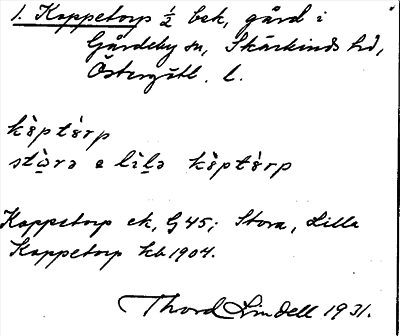 1. Koppetorp ½ bek, gård i
Gårdeby sn, Skärkinds hd,
Östergötl. l.
kȍptɷrp
stɷ̀ra ɷ lìla kȍptɷrp
Koppetorp ek, G 45; Stora, Lilla
Koppetorp kb 1904.
Thord Lindell 1931.